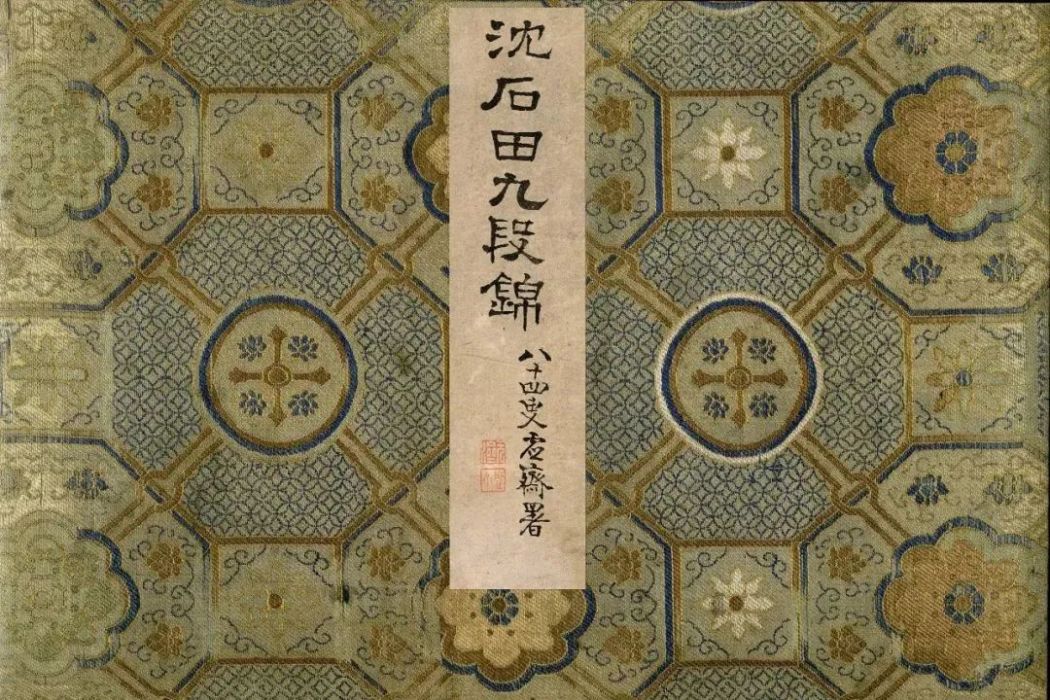 沈石田九段錦
八十四叟虛齋署